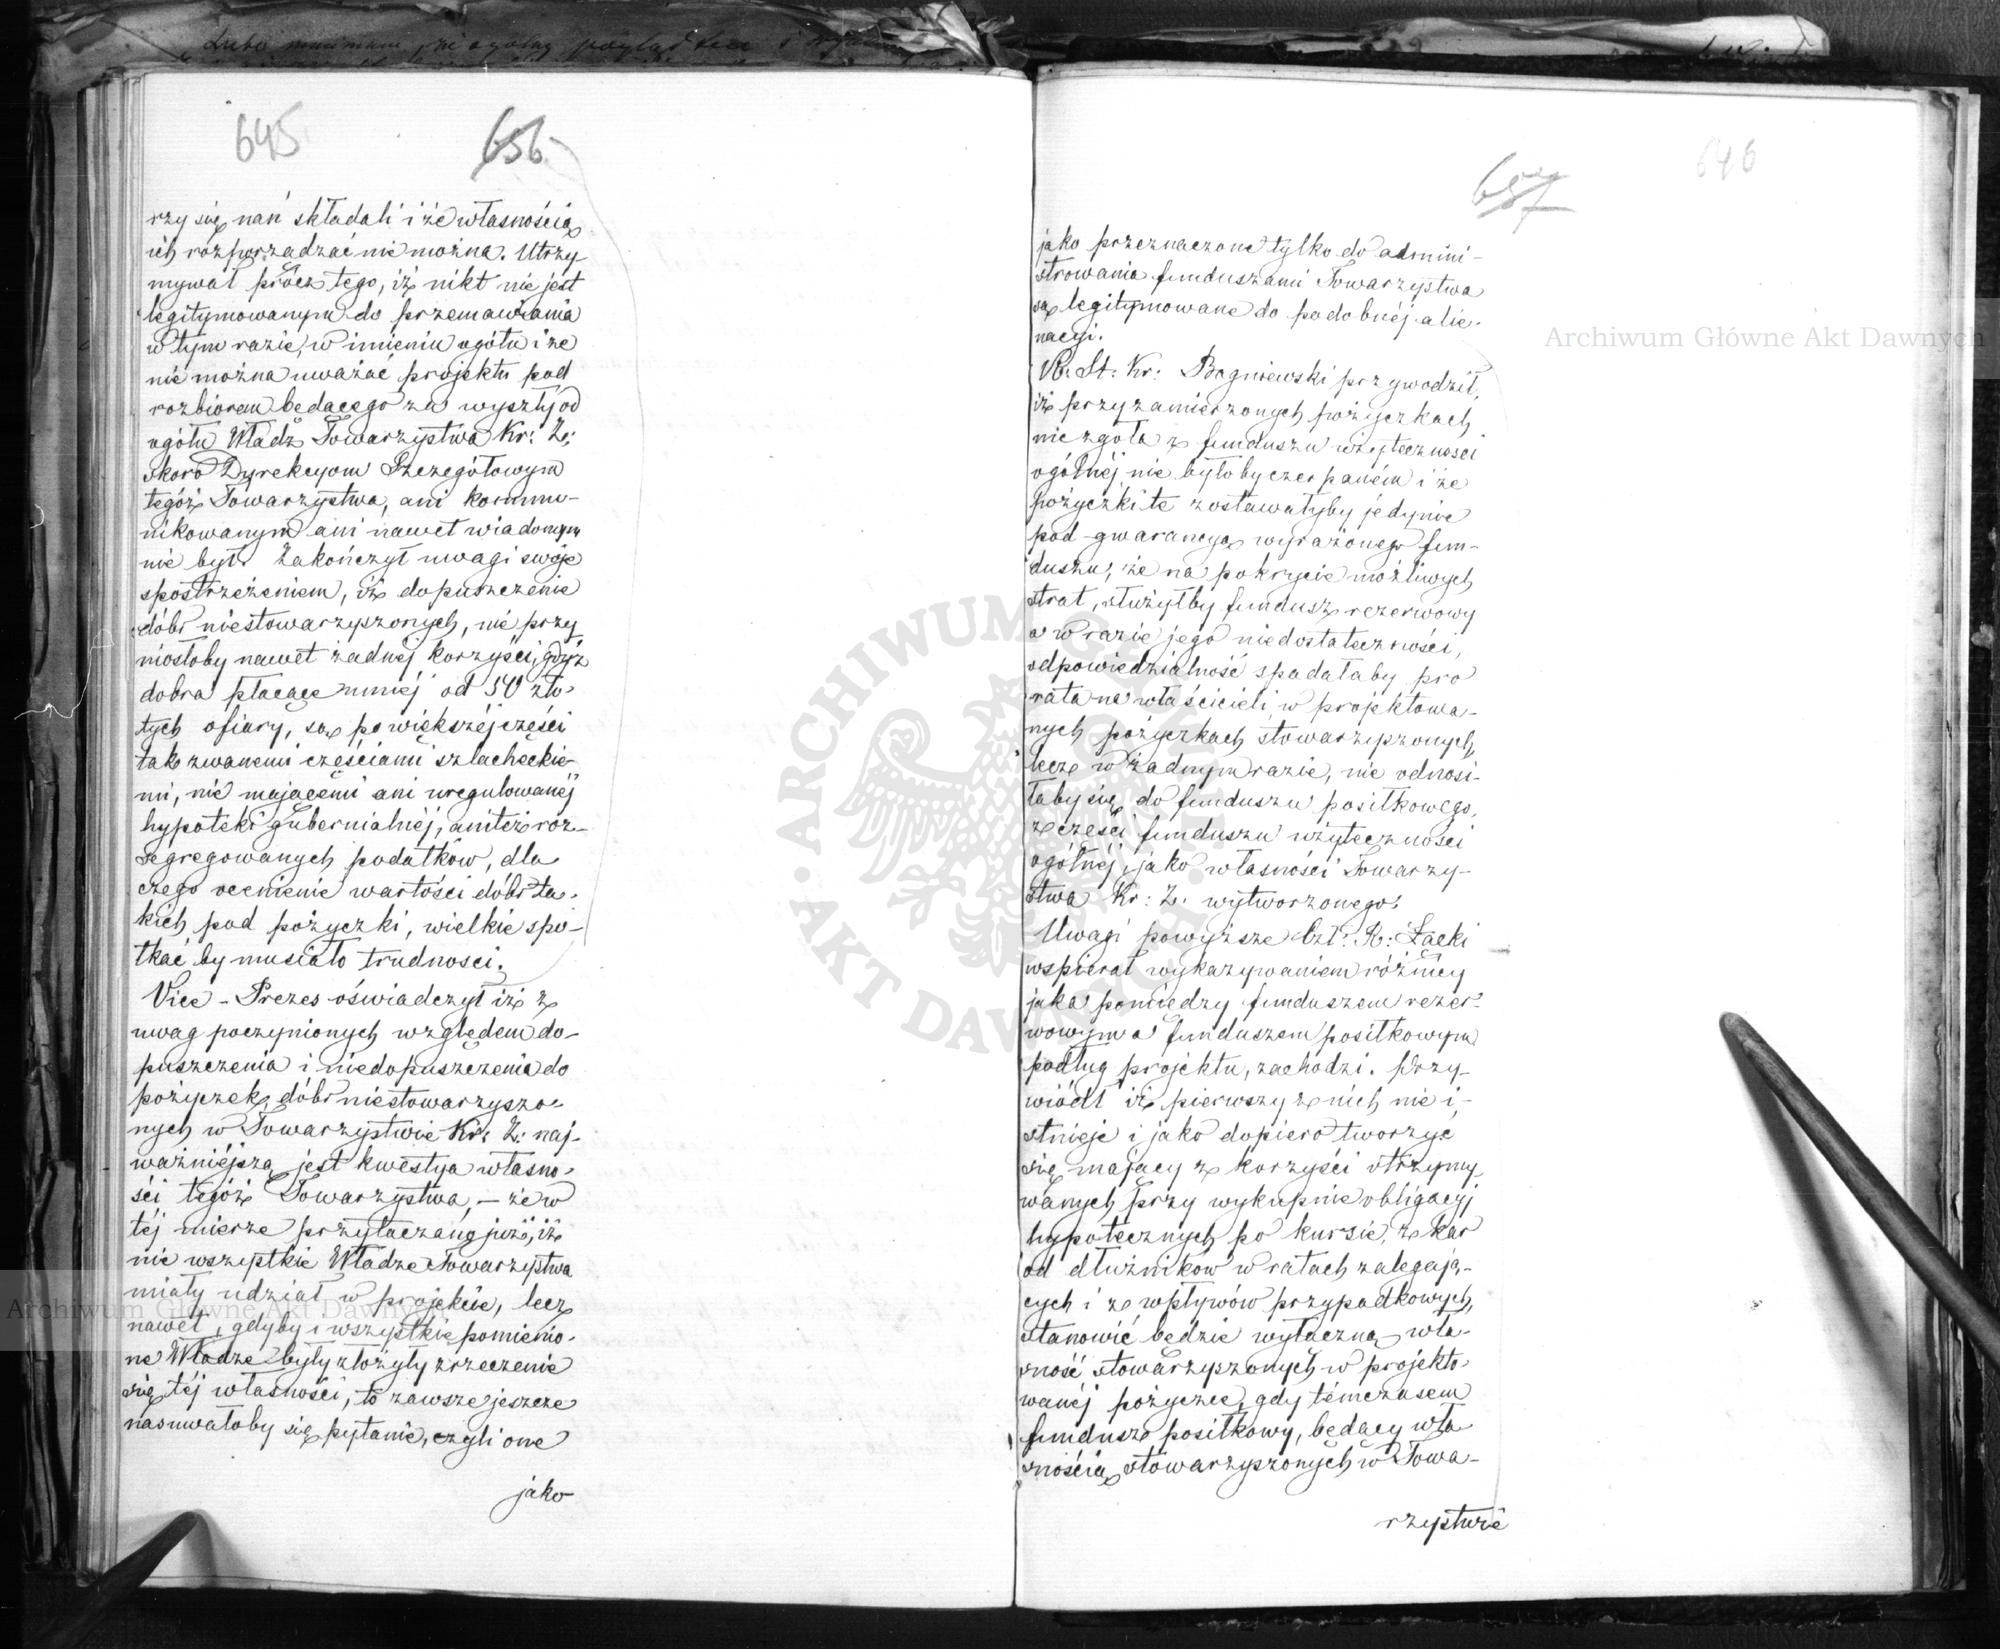 645
656
rzy się nań składali i że własnością
ich rozporządzać nie można. Utrzy-
mywał prócz tego, iż nikt nie jest
legitymowanym do przemawiania
w tym razie, w imieniu ogółu i że
nie można uważać projektu pod
rozbiorem będącego za wyszły od
ogółu Władz Towarzystwa Kr: Z:
skoro Dyrekcyom Szczegółowym
tegóż Towarzystwa, ani kommu-
nikowanym ani nawet wiadomym
nie był. Zakończył uwagi swoje
spostrzeżeniem, iż dopuszczenie
dóbr niestowarzyszonych, nie przy
niosłoby nawet żadnej korzyści, gdyż
dobra płacące mniéj od 50 zło-
tych ofiary, są po większéj części
tak zwanemi częściami szlacheckie-
mi, nie mającemi ani uregulowanéj
hypoteki gubernialnéj, ani też roz-
segregowanych podatków, dla
czego ocenienie wartości dóbr ta-
kich pod pożyczki, wielkie spo-
tkać by musiało trudności.
Vice-Prezes oświadczył iż z
uwag poczynionych względem do-
puszczenia i niedopuszczenia do
pożyczek, dóbr niestowarzyszo-
nych w Towarzystwie Kr: Z: naj-
ważniéjszą jest kwestya własno-
ści tegóż Towarzystwa, – że w
téj mierze przytaczano już, iż
nie wszystkie Władze Towarzystwa
miały udział w projekcie, lecz
nawet, gdyby i wszystkie pomienio-
ne Władze były złożyły zrzeczenie
się téj własności, to zawsze jeszcze
nasuwałoby się pytanie, czyli one
jako
657
646
jako przeznaczone tylko do admini-
strowania funduszami Towarzystwa
są legitymowane do podobnéj alie-
nacyi.
R: St: Kr: Bagniewski przywodził,
iż przy zamierzonych pożyczkach
nic zgoła z funduszu użyteczności
ogólnéj nie byłoby czerpaném i że
pożyczki te zostawałyby jedynie
pod gwarancyą wyrażonego fun-
duszu; że na pokrycie możliwych
strat, służyłby fundusz rezerwowy
a w razie jego niedostateczności,
odpowiedzialność spadałaby pro
rata na właścicieli w projektowa-
nych pożyczkach stowarzyszonych,
lecz w żadnym razie, nie odnosi-
łaby się do funduszu posiłkowego,
z części funduszu użyteczności
ogólnéj, jako własności Towarzy-
stwa Kr: Z: wytworzonego.
Uwagi powyższe Czł: K: Łącki
wspierał wykazywaniem różnicy
jaka pomiędzy funduszem rezer-
wowym a funduszem posiłkowym
podług projektu, zachodzi. Przy-
wiódł iż pierwszy z nich nie i-
stnieje i jako dopiero tworzyć
się mający z korzyści otrzymy-
wanych przy wykupnie obligacyj
hypotecznych po kursie, z kar
od dłużników w ratach zalegają-
cych i ze wpływów przypadkowych,
stanowić będzie wyłączną wła-
sność stowarzyszonych w projekto-
wanéj pożyczce, gdy tymczasem
fundusz posiłkowy, będący wła
snością stowarzyszonych w Towa-
rzystwie
Archiwum Główne Akt Dawnych
Archiwum Główne Akt Dawnych
ARCHIWUM GŁÓWNE AKT DAWNYCH